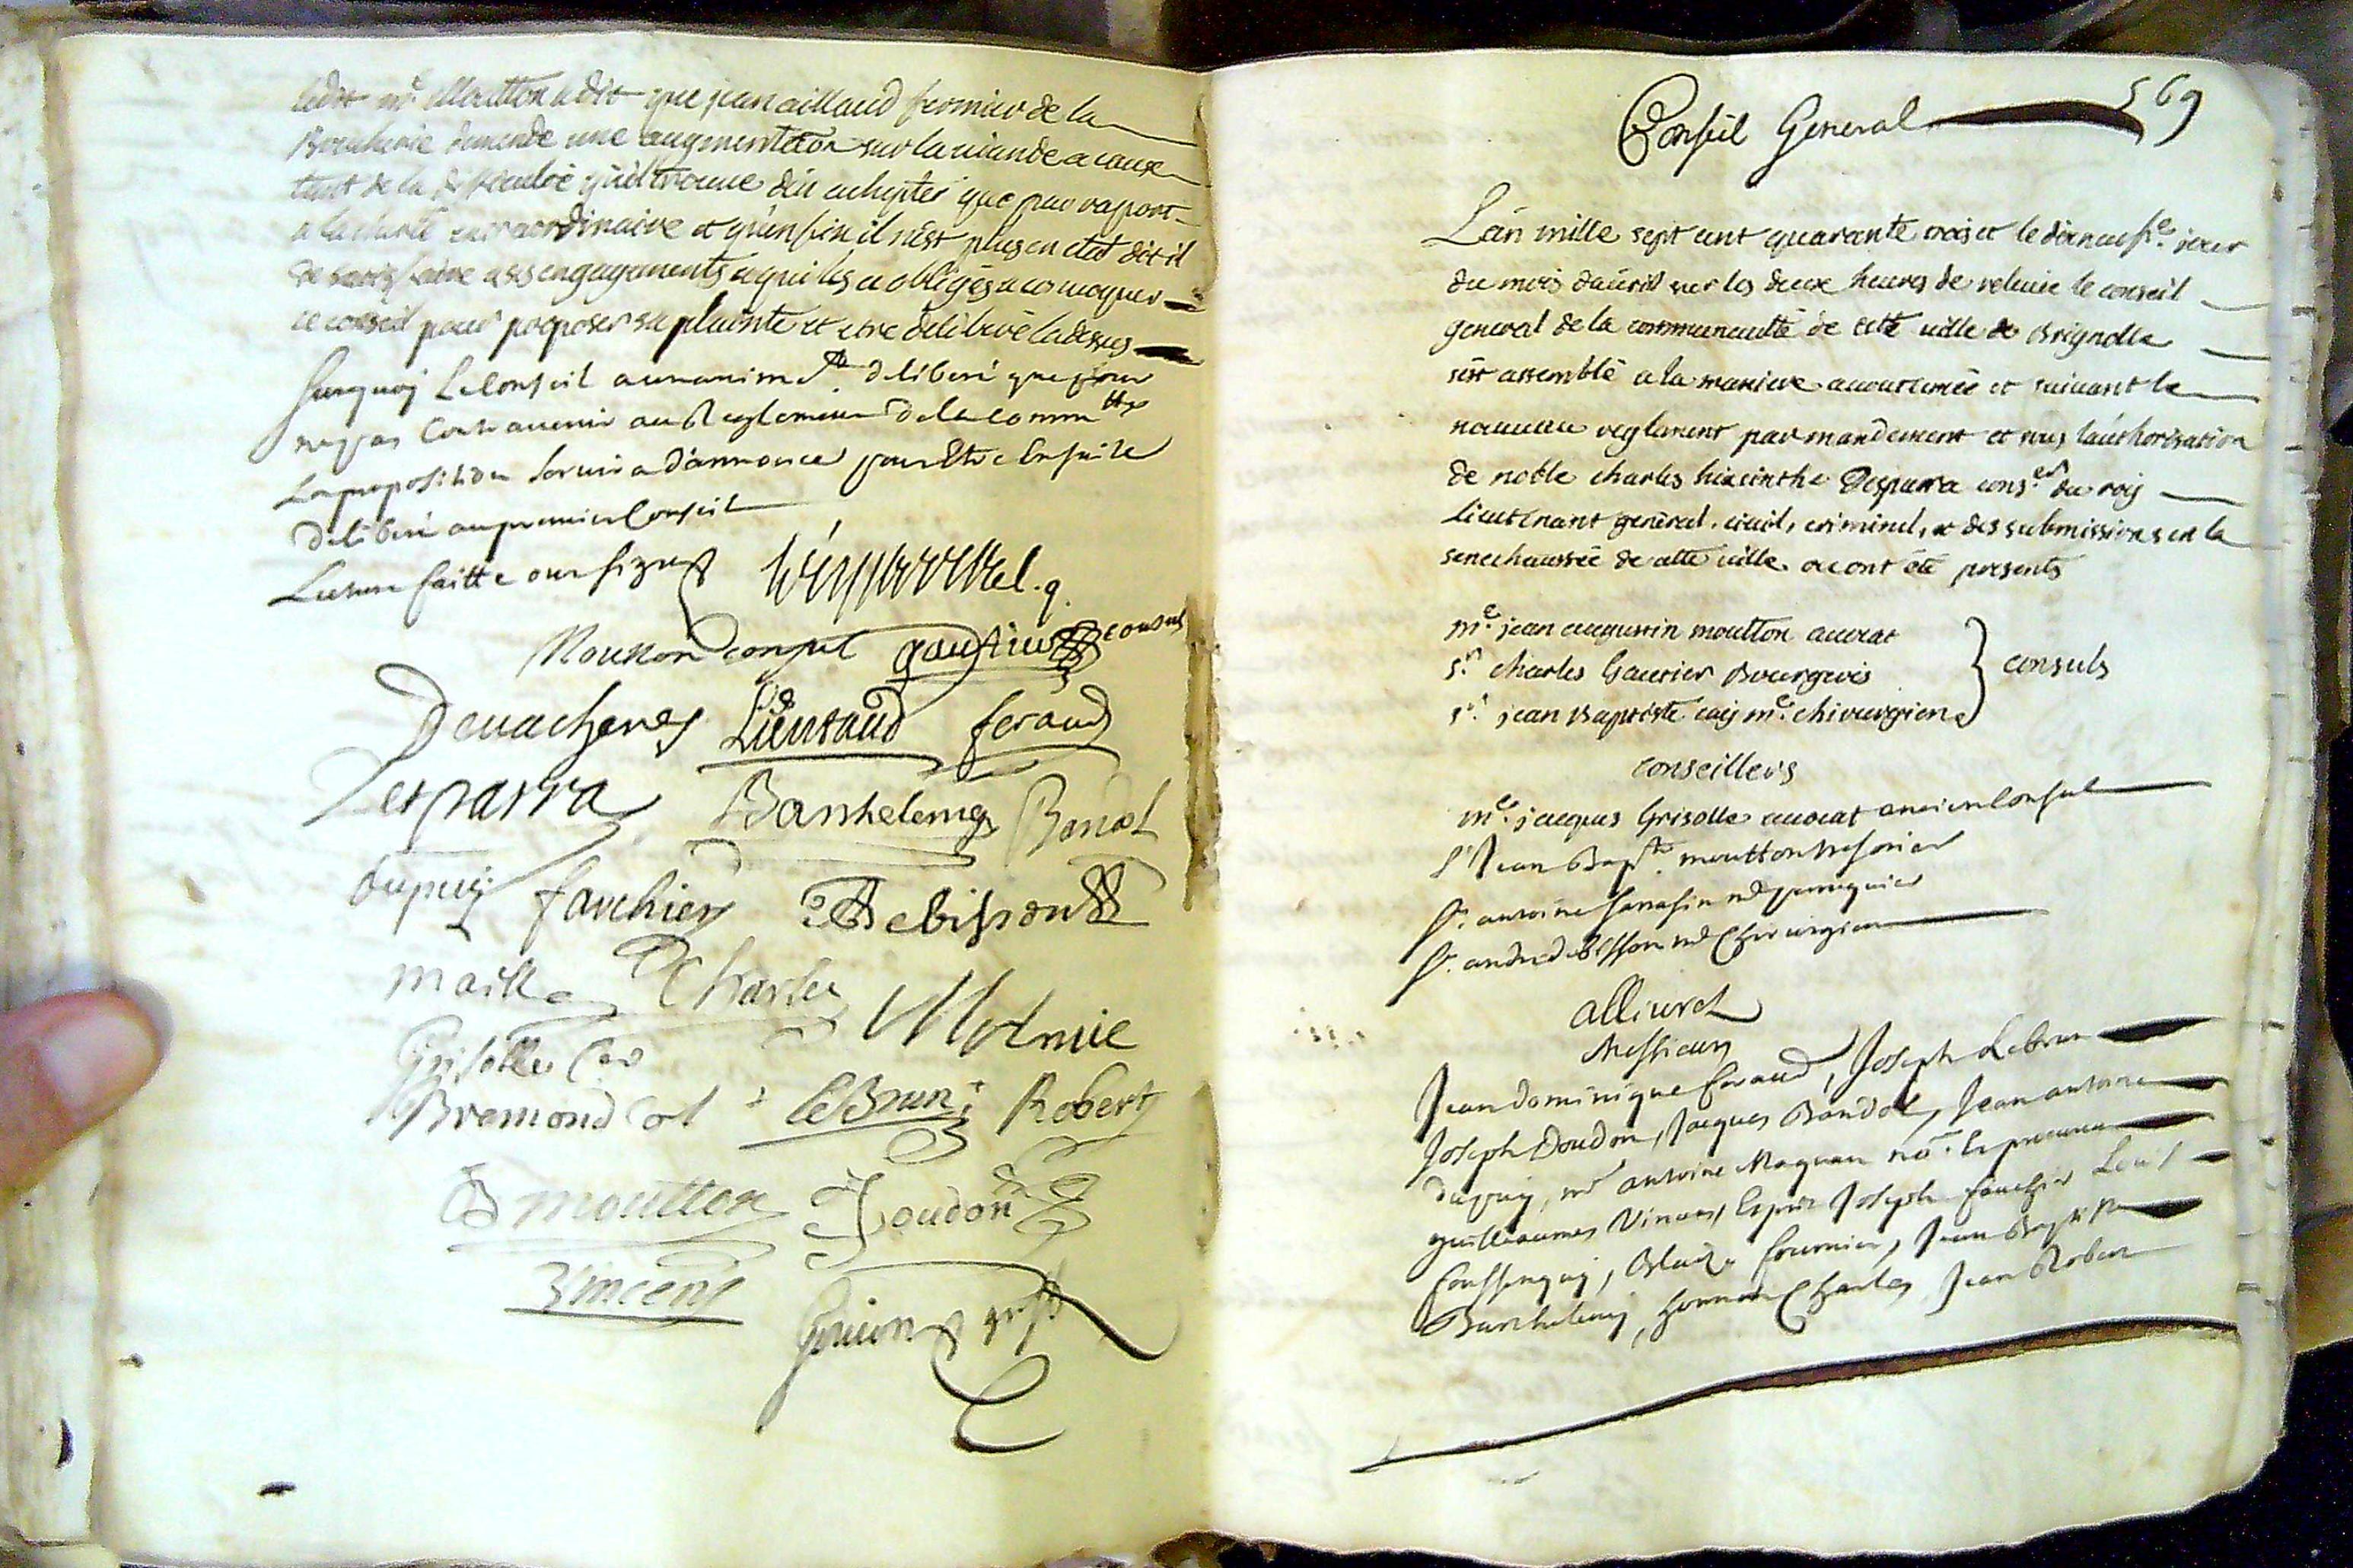 ledit me. Moutton a dit que jean aillaud fermier de la
Boucherie demande une augmentation sur la viande a cause
tant de la difficulté qu'il trouve d'en achepter que par raport
a la cherté extraordinaire et qu'enfin il n'est plus en etat dit il
de satisfaire a ses engagements ce qui les a obligés a convoquer
ce conseil pour proposer sa plainte et etre deliberé la dessus
Surquoy Le Conseil a unanimet. deliberé que pour
ne pas Contrevenir au Reglement de la commtté
La proposition servira d'annonce pour Etre Ensuite
deliberé au premier Conseil
Lecture faitte ont signes
Moutton consul gautier consul
Devacheres Lieutaud feraud
Lesparra Barthelemy Bandol
dupuy fauchier Debisson
maille Charles
Grisolle
Bremond Col LeBrun Robert
moutton Doudon
Vincens
Conseil General 569
L'an mille sept cent quarante trois et le dixneufe. jour
du mois d'auril sur les deux heures de releuée le conseil
general de la communautté de cette uille de Brignolle
s'est assemblé a la maniere accoutumée et suiuant le
nouueau reglement par mandement et sous l'authorisation
de noble charles hiacinthe Desparra conser. du roy
Lieutenant general, ciuil, criminel, et des submissions en la
senechaussée de cette uille. ou ont été presents
me. jean augustin moutton auocat
sr. charles Gautier Bourgeois } consuls
sr. jean Baptiste caij me. chirurgien
conseillers
me. jacques Grisolle auocat ancien Consul
sr Jean Bapte. moutton tresorier
sr. antoine sarrasin me perruquier
sr. andré debisson me Chirurgien
alliurés
Messieurs
Jean dominique feraud, Joseph Lebrun
Joseph Doudon, Jacques Bandol, Jean antoine
dupuy, me antoine Maquan
guilleaumes Vincens, Esprit Joseph fauchier Louis
Blaize fournier, Jean Baptiste
Barthelemy, honnoré Charles Jean Robert